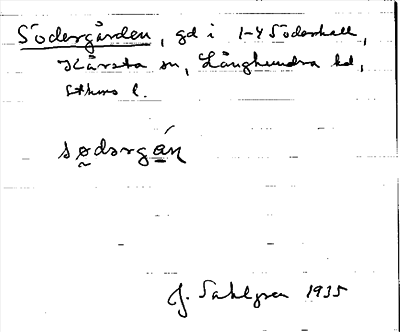 Södergården, gd i 1-4 Söderhall,
Kårsta sn, Långhundra hd,
Sthms l.
södərgán
J. Sahlgren 1935